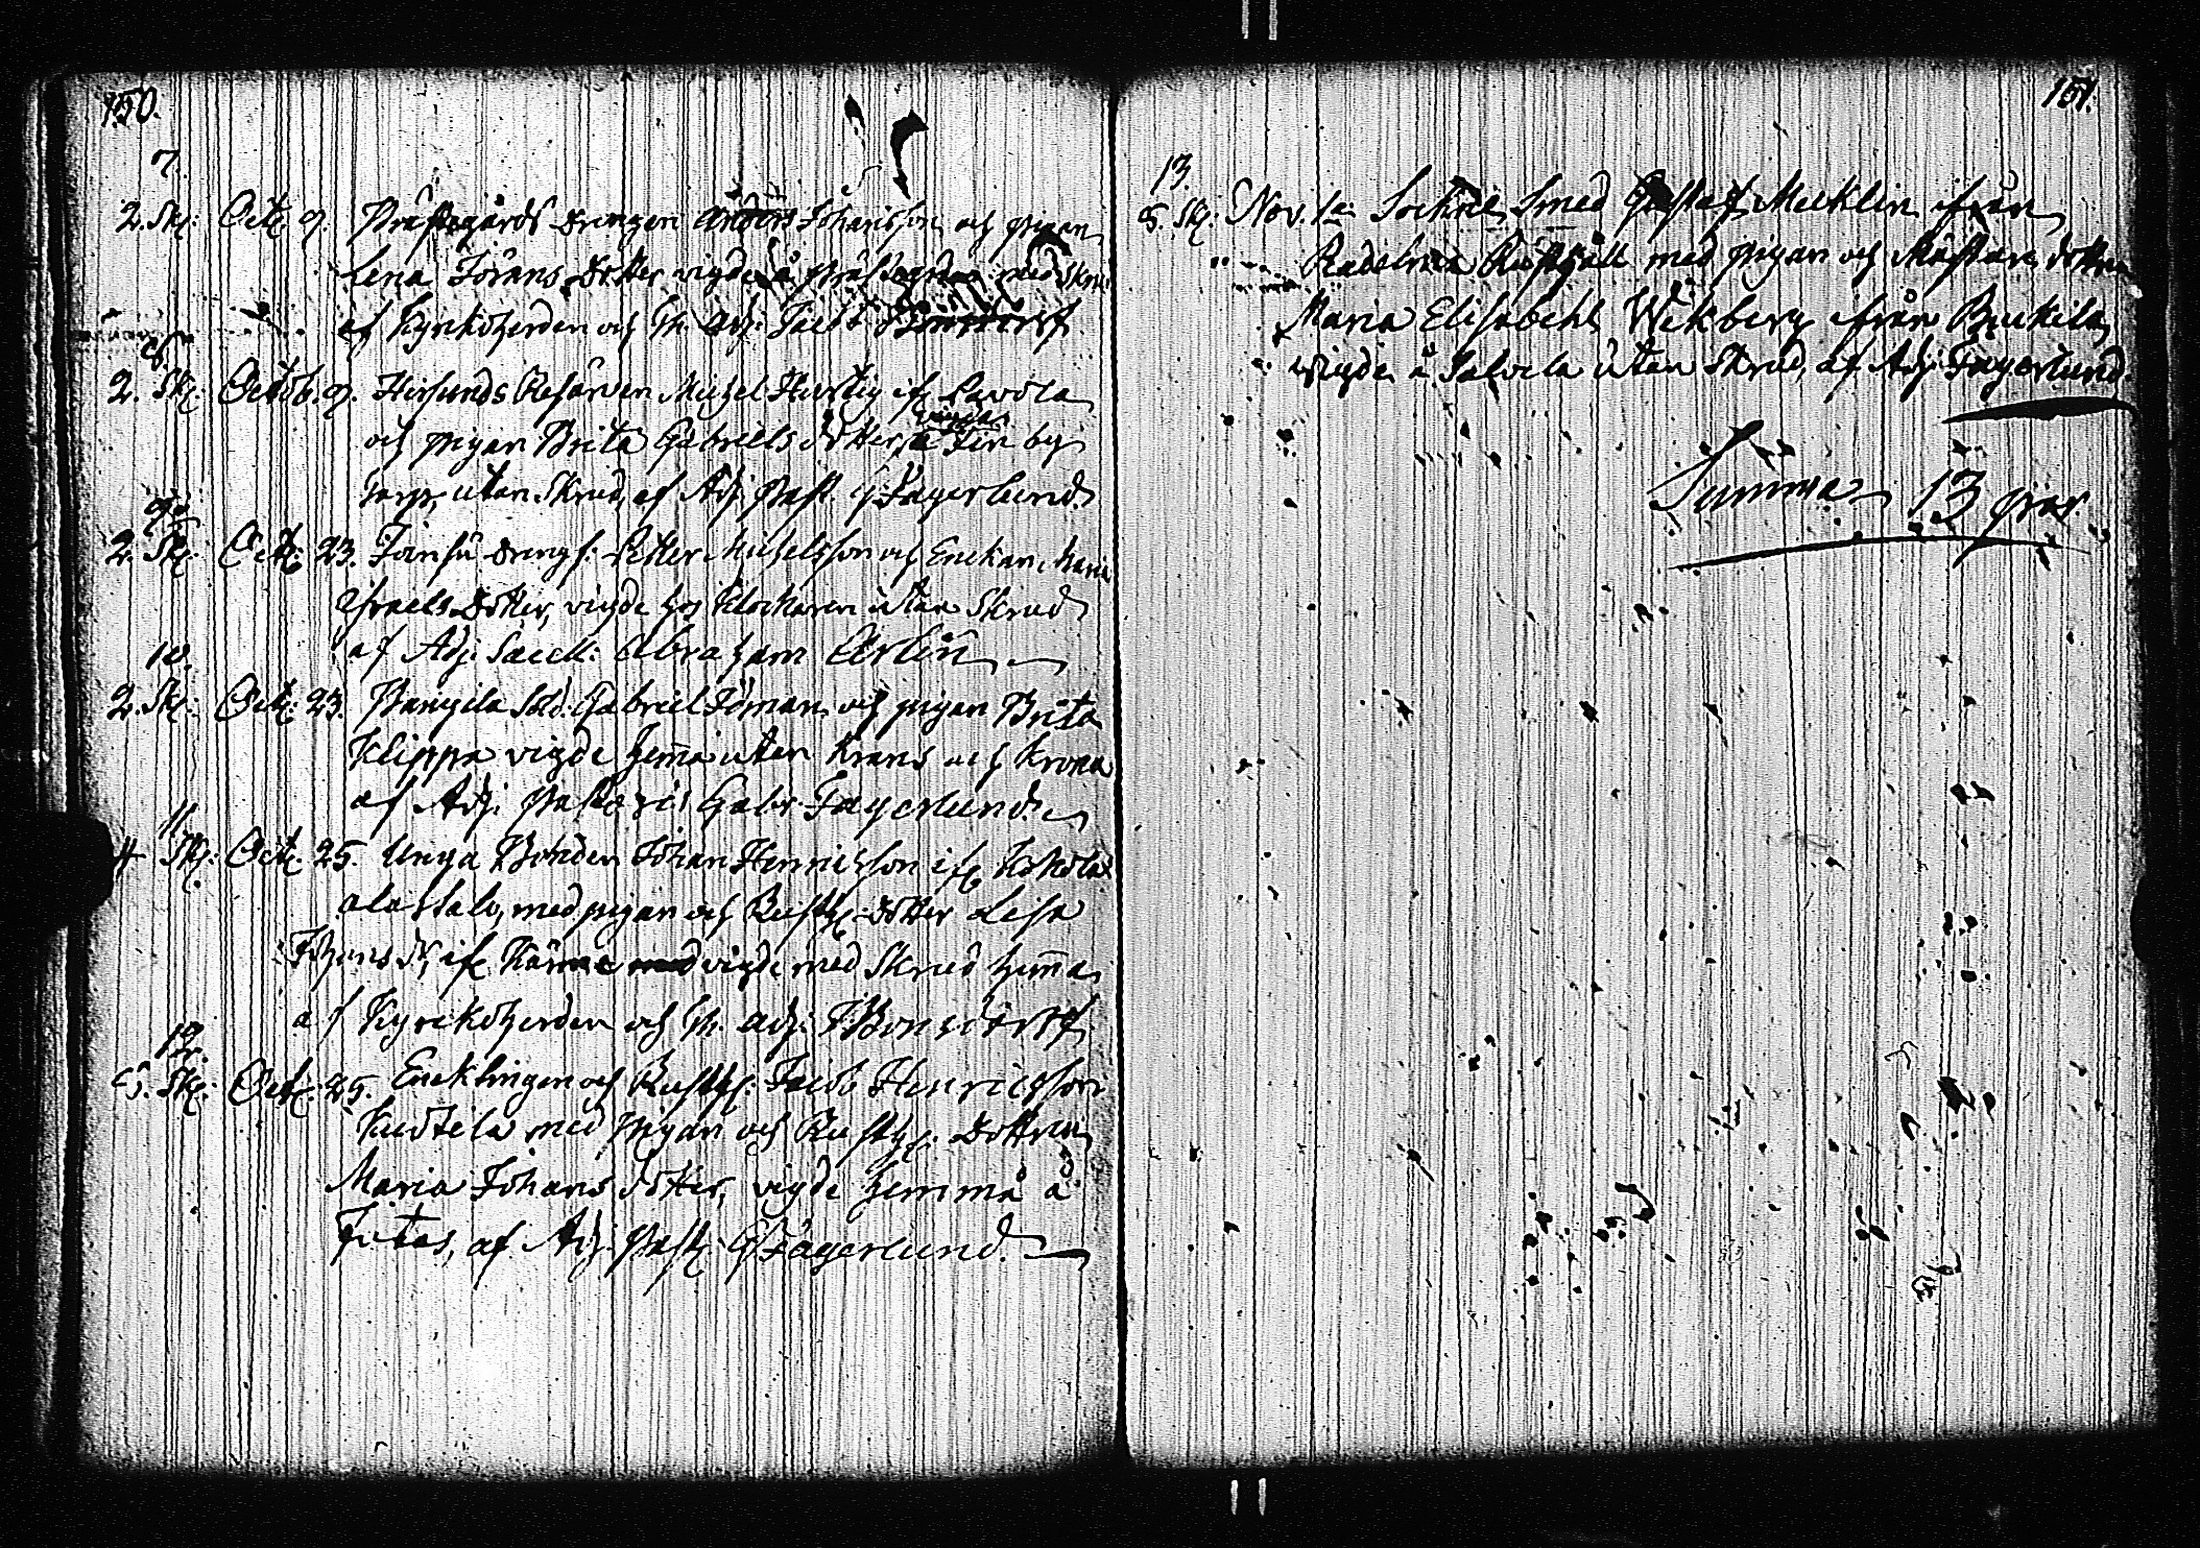 150.
7.
2. Sk: Oct: 9. Prästegårds drengen Anders Johansson och pigan
Lena Jörans Dotter vigde å prästegården med Skrud
af Kyrkoherden och Th. Adj: Jacob Bonsdorff
8.
2. Sk: Octob. 9. Hirsunds Reserven Michel Hurtig if: Lavola
och pigan Brita Gabriels dotter, vigde å Jin by
utan Skrud, af Adj. Past. G Fagerlund.
9.
2. Sk: Oct: 23. drengs: Petter Michelsson och Enckan Maria
Israels Dotter, vigde hos Klockaren utan Skrud
af Adj. Sacell: Abraham Arlin
10.
2. Sk: Oct: 23. Pampila Sold: Gabriel Töman och pigan Brita
Klippa vigde hemma utan Krans och Krona
af Adj. Past Gabr. Fagerlund.
11
4 Sk: Oct: 25. Unga Bonden Johan Henricsson if:
alastalo, med pigan och Rusth: Dotter Lisa
Johans d:, if: vigde med Skrud hemma
af Kyrckoherden och Th. adj: J Bonsdorff
12.
5. Sk: Oct: 25. Encklingen och Rusth: Jacob Henricsson
med Pigan och Rusth: Dottren
Maria Johans dotter, vigde hemma å
Jutas, af Adj. Past: G Fagerlund.
151.
13.
5. Sk: Nov. 1a Sockne Smed Gustaf Mecklin ifrån
med pigan och Mästare dottren
Maria Elisabeth Wikberg ifrån
vigde å Salvela utan Skrud, af Adj: Fagerlund.
Summa 13 par